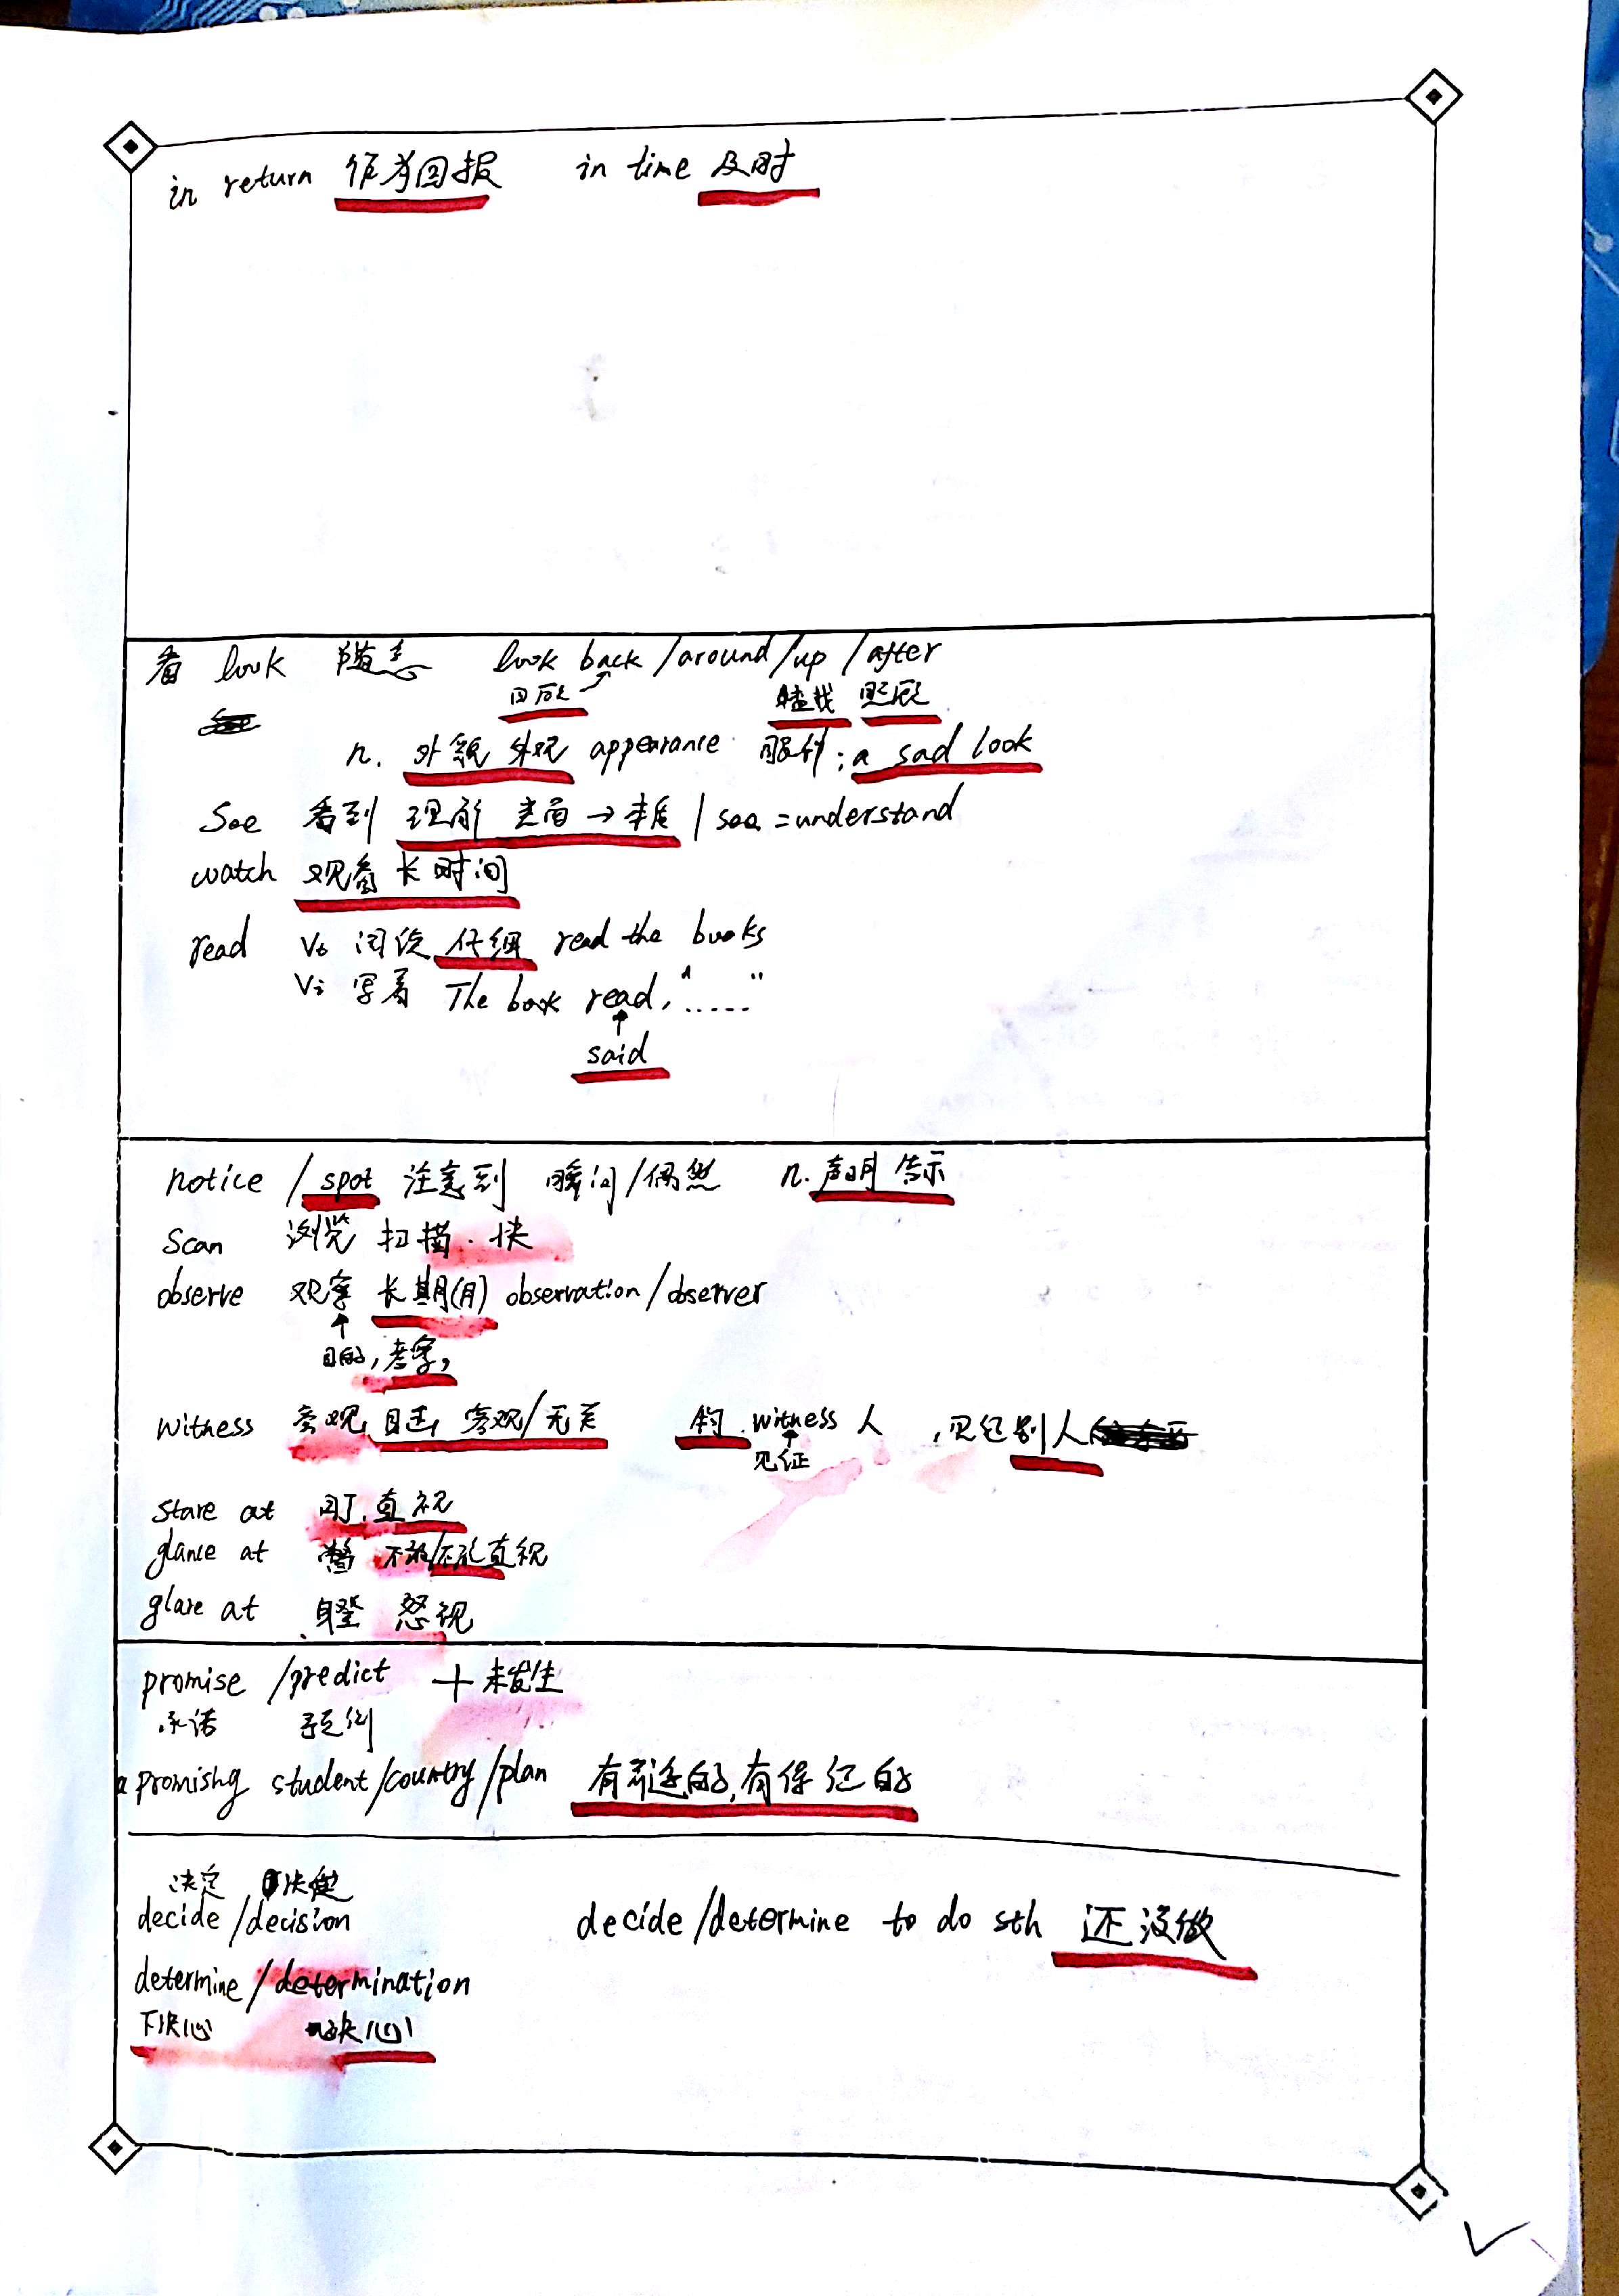 in return 作为回报 in time 及时
看 look 随意 look back/around/up/after
回顾 查找 照顾
n. 外貌 外观 appearance 眼神; a sad look
See 看到 理解 表面→本质 | see = understand
watch 观看 长时间
read Vt 阅读 仔细 read the books
Vi 写着 The book read, "......"
said
notice / spot 注意到 瞬间/偶然 n. 声明 告示
Scan 浏览 扫描. 快
observe 观察 长期(月) observation/observer
目的,考察,
Witness 旁观 目击, 客观/无关 witness 人 ,见证别人
见证
stare at 盯.直视
glance at 瞥 不敢/不能直视
glare at 瞪 怒视
promise /predict + 未发生
承诺 预测
a promising student/country/plan 有前途的,有保证的
决定 决定
decide/decision decide/determine to do sth 还没做
determine/determination
下决心 决心